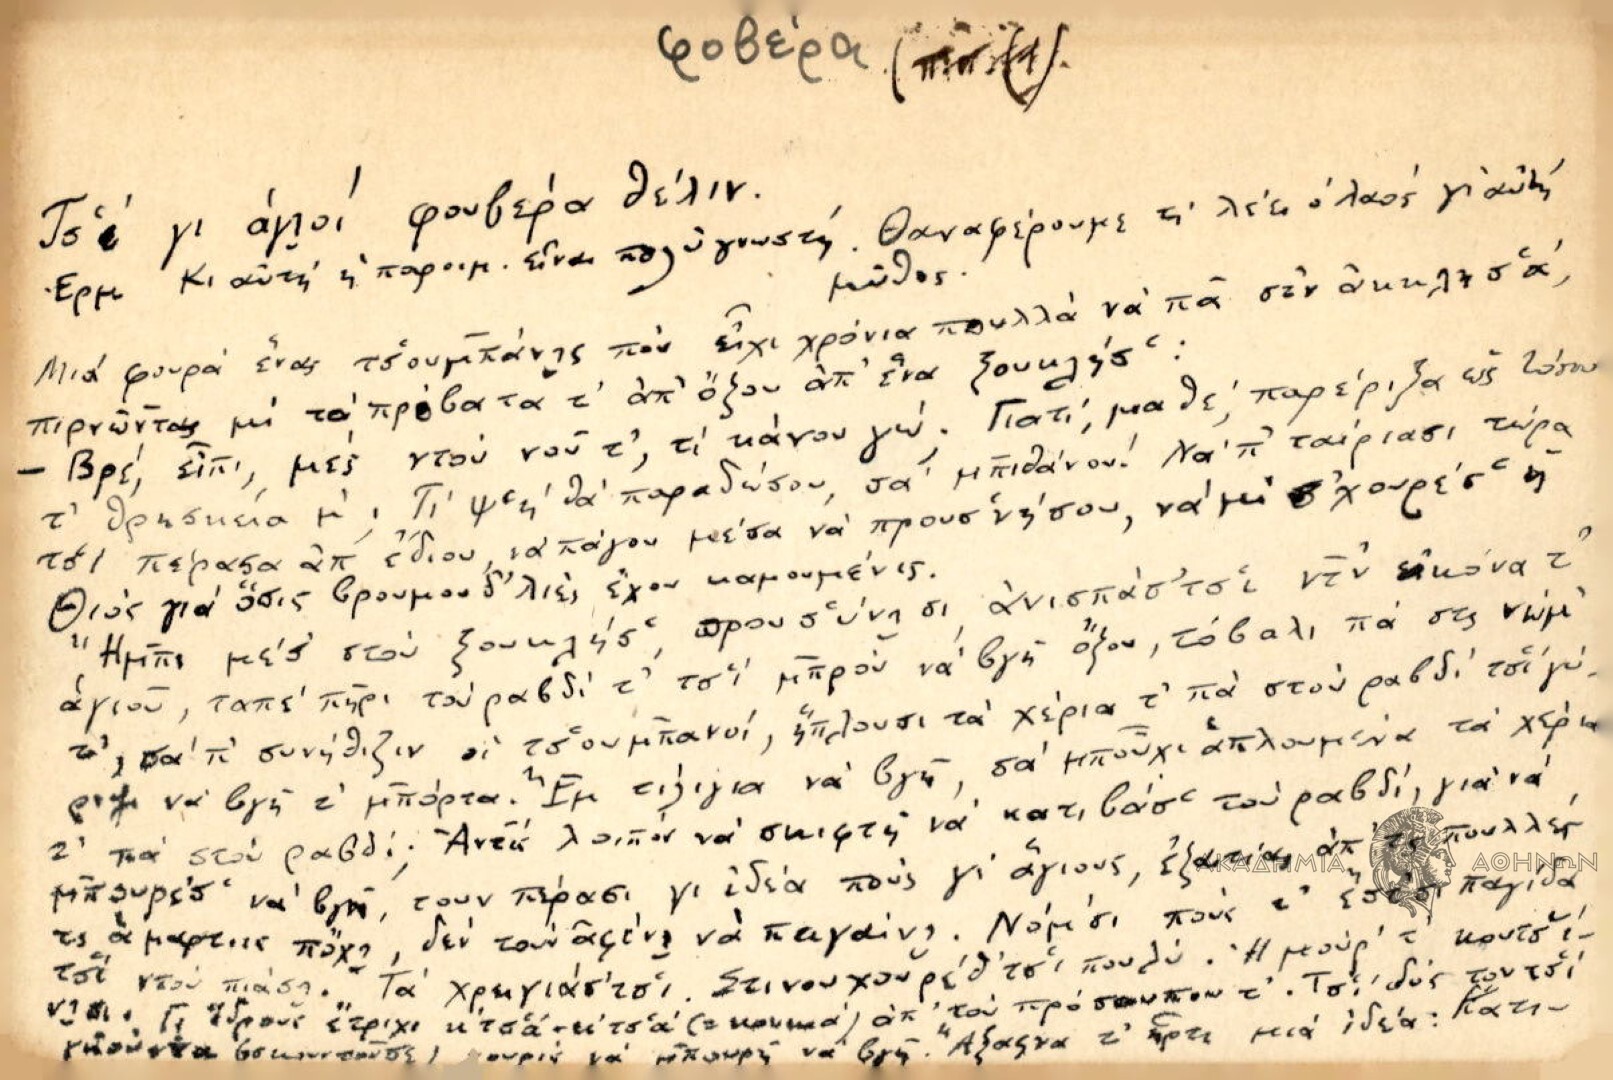 φοβέρα
Τσ̌ι γι άγιοί φουβέρα θέλιν.
Ερμ Κι αὐτή ἡ παροιμ. εἶναι πολύ γνωστή. Θαναφέρουμε τί λέει ὁ λαός γι' αὐτή
μῦθος.
Μιά φουρά ἕνας τσ̌ουμπάνης πού εἶχι χρόνια πουλλά νά πᾶ στήν ἀκκλησ̌ά,
πιρνῶντας μί τά πρόβατα τ' ἀπ' ὄξου ἀπ' ἕνα ξουκλήσ̌:
– Βρέ, εἶπι, μές ντού νοῦ τ', τί κάνου γώ; Γιατί, μαθέ, παρέριξα ὡς τόσου
τ' θρησκεία μ'; Τί ψ̌ή θά παραδώσου, σά μπιθάνου! Νά π' ταίριασι τώρα
τσ̌ί πέρασα ἀπ' ἔδιου, νά πάγου μέσα νά προυσ̌νήσου, νά μί σ̌χουρέσ̌ η
Θιός γιά ὅσις βρουμουδ'λιές ἔχου καμουμένις.
Ἤμπι μέσ' στού ξουκλήσ̌, προυσ̌ύνησι, ἀνισπάσ'τσ̌ι ντήν εἰκόνα τ'
ἁγιοῦ, ταπέ πῆρι τού ραβδί τ' τσ̌ί μπρού νά βγῆ ὄξου, τόβαλι πά στς νώμ'
τ', σά π' συνήθιζιν οἱ τσ̌ουμπανοί, ἥπλουσι τά χέρια τ' πά στού ραβδί τσ̌ί γύ-
ριψι νά βγῆ τ' μπόρτα. Ἔμ τιλίγια νά βγῆ, σά μποῦχι ἁπλουμένα τά χέρια
τ' πά στού ραβδί; Ἀντίς λοιπόν νά σκιφτῆ νά κατιβάσ̌ τού ραβδί, γιά νά
μπουρέσ̌ νά βγῆ, τουν πέρασι γι ἰδέα πούς γι' ἅγιους, ἐξαιτίας ἀπ' τς πουλλές
τς ἁμαρτίις πὄχη, δέν τουν ἀφίνη νά πηγαίνη. Νόμ'σι πούς τ' ἔστ'σι παγίδα
τσ̌ί ντού πιάση. Τά χρειγιάσ'τσ̌ι. Στινουχουρέθ'τσ̌ι πουλύ. Ἡ μούρ' τ' κουτσ̌ί-
νησι. Γι ἵδρους ἔτριχι κ'τσ̌ά-κ'τσ̌ά (= κουκιά) ἀπ' τού πρόσουπου τ'. Τσ̌ί δός του τσ̌ί
νά μπουρῆ νά βγῆ. Ἄξαφνα τ' ἦρτι μιά ἰδέα: Κάτι-